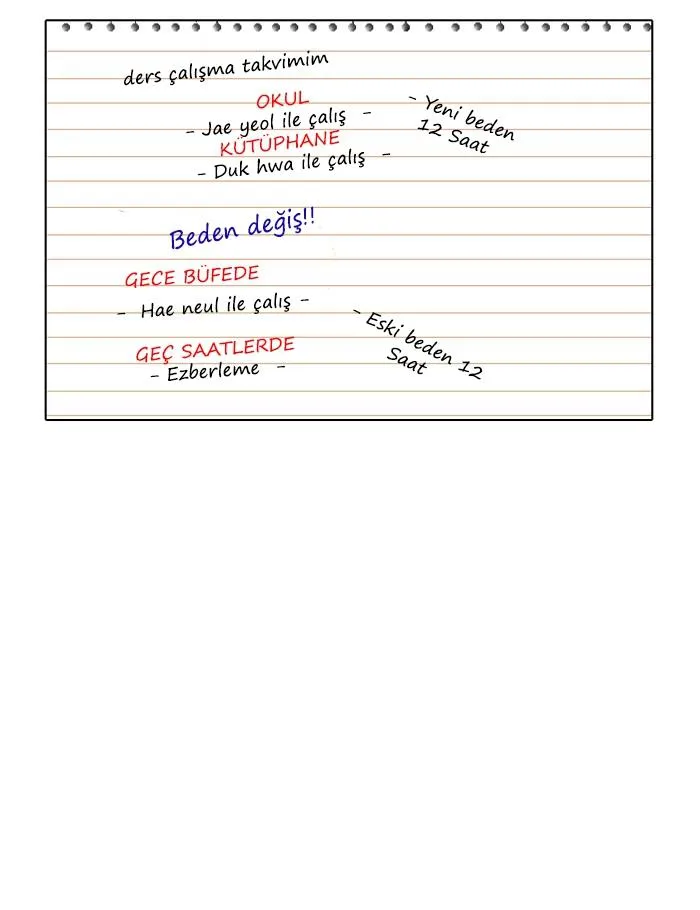 ders çalışma takvimim
OKUL
- Jae yeol ile çalış -
KÜTÜPHANE
- Duk hwa ile çalış -
- Yeni beden
12 Saat
Beden değiş!!
GECE BÜFEDE
- Hae neul ile çalış -
GEÇ SAATLERDE
- Ezberleme -
- Eski beden 12
Saat